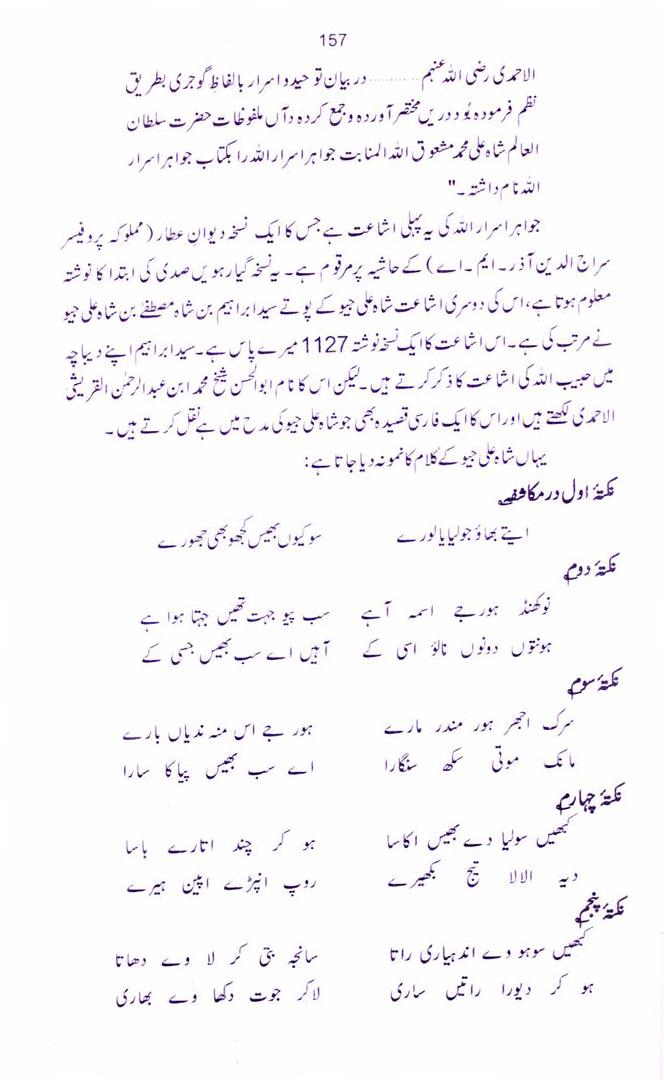 157
الاحمدی رضی اللہ عنہم ............ در بیان توحید و اسرار بالفاظ گوجری بطریق
نظم فرمودہ بُود دریں مختصر آوردہ و جمع کردہ دآں ملفوظات حضرت سلطان
العالم شاہ علی محمد مشعوق اللہ المنابت جواہر اسرار اللہ را بکتاب جواہر اسرار
اللہ نام داشتہ۔"
جواہر اسرار اللہ کی یہ پہلی اشاعت ہے جس کا ایک نسخہ دیوان عطار (مملوکہ پروفیسر
سراج الدین آذر۔ ایم۔اے) کے حاشیہ پر مرقوم ہے۔ یہ نسخہ گیارہویں صدی کی ابتدا کا نوشتہ
معلوم ہوتا ہے، اس کی دوسری اشاعت شاہ علی جیو کے پوتے سید ابراہیم بن شاہ مصطفٰے بن شاہ علی جیو
نے مرتب کی ہے۔ اس اشاعت کا ایک نسخہ نوشتہ 1127 میرے پاس ہے۔ سید ابراہیم اپنے دیباچہ
میں حبیب اللہ کی اشاعت کا ذکر کرتے ہیں۔ لیکن اس کا نام ابوالحسن شیخ محمد ابن عبدالرحمٰن القریشی
الاحمدی لکھتے ہیں اور اس کا ایک فارسی قصیدہ بھی جو شاہ علی جیو کی مدح میں ہے نقل کرتے ہیں۔
یہاں شاہ علی جیو کے کلام کا نمونہ دیا جاتا ہے:
نکتۂ اول در مکاشفہ
اپتے بھاؤ جو لیایا لورے سو کیوں بھیس کچھو بھی جھورے
نکتۂ دوم
نوکھنڈ ہور جے اسمہ آہے سب پیو جہت تھیں جہتا ہوا ہے
ہونتوں دونوں نالؤ اسی کے آہیں اے سب بھیس جسی کے
نکتۂ سوم
سرک اجھر ہور مندر مارے ہور جے اس منہ ندیاں بارے
مانک موتی سکھ سنگارا اے سب بھیس پیا کا سارا
نکتۂ چہارم
کبھیں سولیا دے بھیس اکاسا ہو کر چند اتارے باسا
دیہ الالا تیج بکھیرے روپ انپڑے اپین ہیرے
نکتۂ پنجم
کبھیں سو ہووے اندہیاری راتا سانجہ بتی کر لاوے دھاتا
ہو کر دیورا راتیں ساری لاکر جوت دکھاوے بھاری